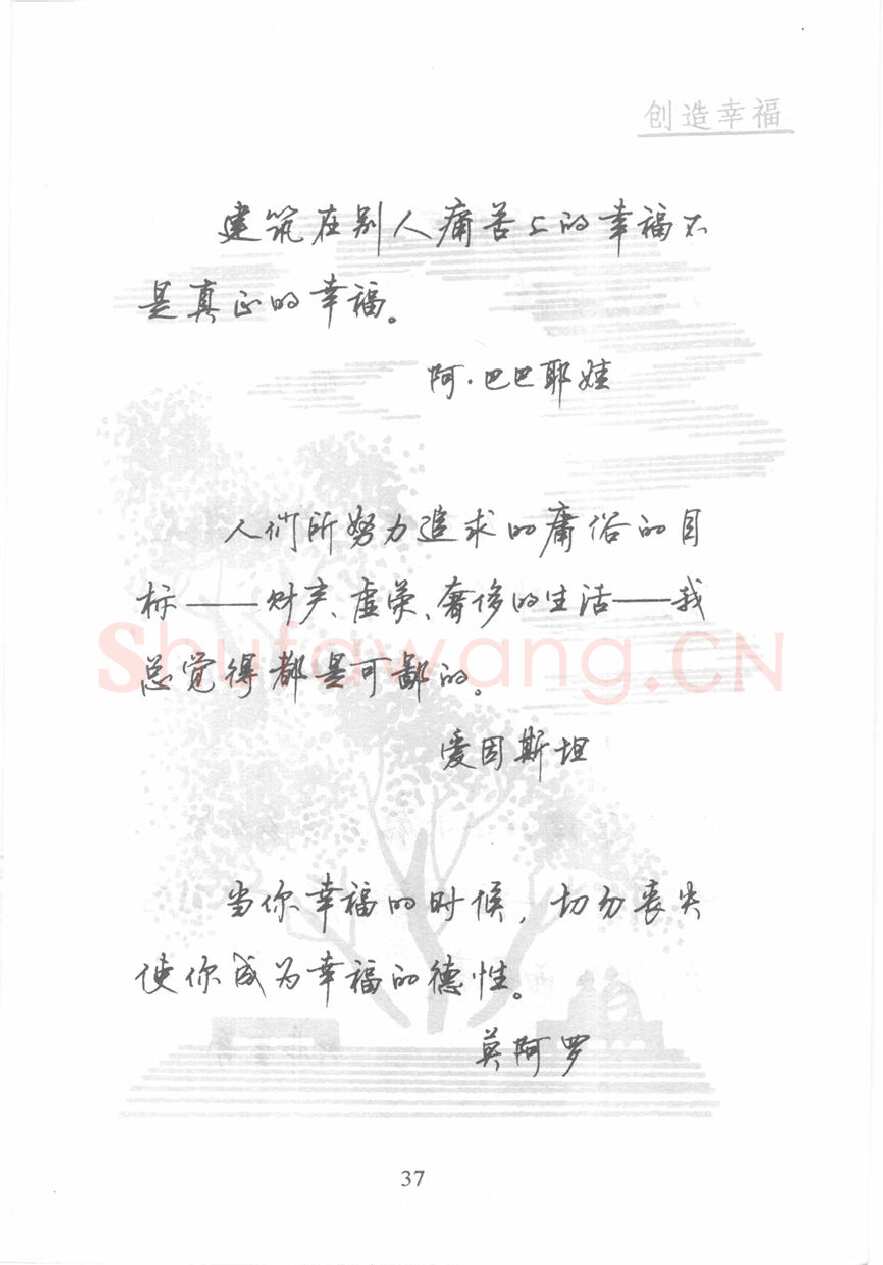 创造幸福
建筑在别人痛苦上的幸福不
是真正的幸福。
阿·巴巴耶娃
人们所努力追求的庸俗的目
标——财产、虚荣、奢侈的生活——我
总觉得都是可鄙的。
Shufawang.CN
爱因斯坦
当你幸福的时候，切勿丧失
使你成为幸福的德性。
莫阿罗
37